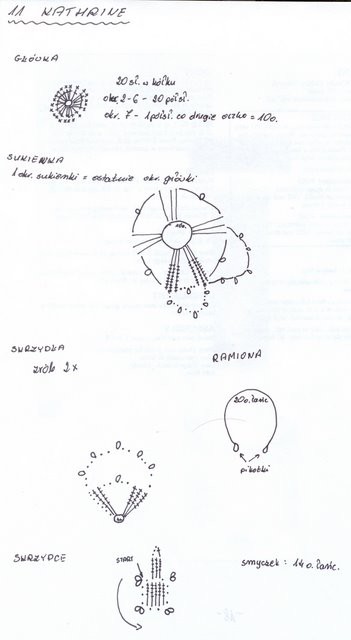 11 KATHRINE
GŁÓWKA
20 sł. w kółku
okr. 2-6 - 20 półsł.
okr. 7 - 1 półsł. co drugie oczko = 10 o.
SUKIENKA
1 okr. sukienki = ostatnie okr. główki
10o.
SKRZYDŁA
zrób 2x
RAMIONA
20 o. łańc.
pikotki
SKRZYPCE
START
smyczek: 14 o. łańc.